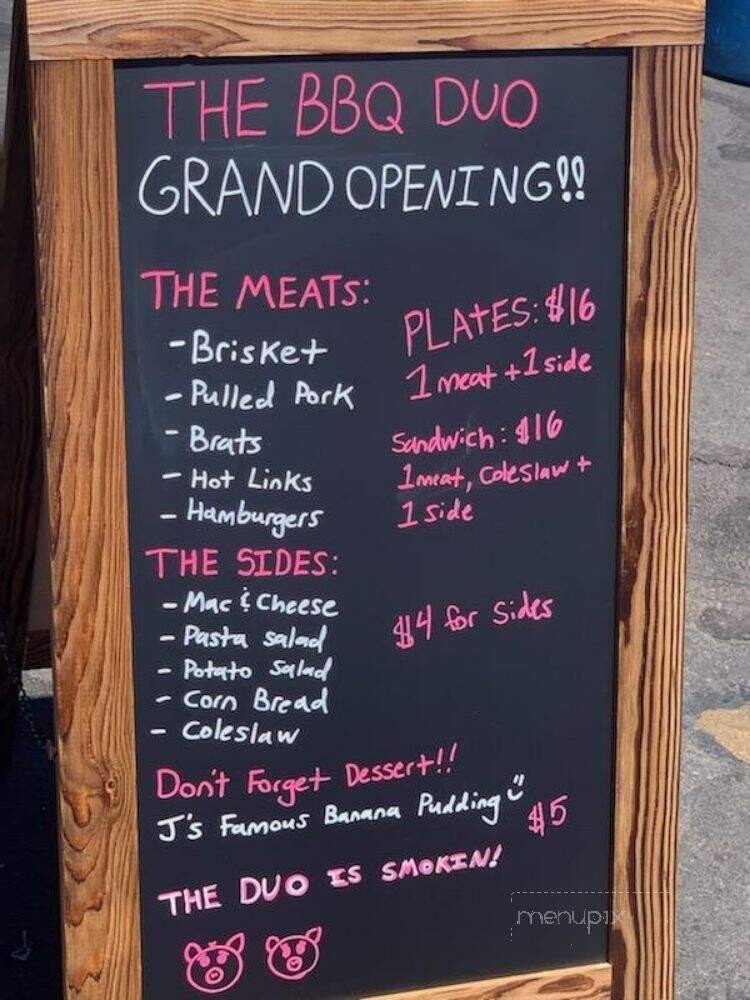 THE BBQ DUO
GRAND OPENING!!
THE MEATS:
- Brisket
- Pulled Pork
- Brats
- Hot Links
- Hamburgers
PLATES: $16
1 meat + 1 side
Sandwich: $16
1 meat, Coleslaw +
1 side
THE SIDES:
- Mac & Cheese
- Pasta salad
- Potato Salad
- Corn Bread
- Coleslaw
$4 for Sides
Don't Forget Dessert!!
J's Famous Banana Pudding
$5
THE DUO IS SMOKIN!
menupix